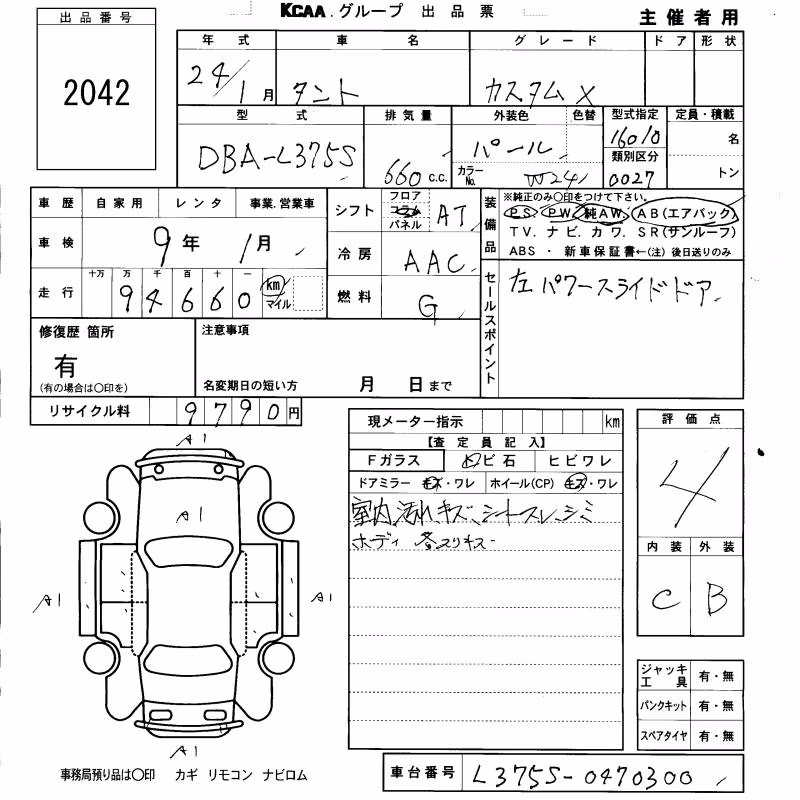 KCAA.グループ 出品票
主催者用
出品番号
2042
年式 車名 グレード ドア 形状
24/1月 タント カスタム X
型式 排気量 外装色 色替 型式指定 定員・積載
DBA-L375S 660 c.c. パール 16010 名
カラーNo. W24 類別区分 0027 トン
車歴 自家用 レンタ 事業.営業車
車検 9年 1月
走行 十万 万 千 百 十 一
94660 km マイル
シフト フロア コラム パネル AT
冷房 AAC
燃料 G
装備品
※純正のみ〇印をつけて下さい。
PS PW 純AW AB(エアバッグ)
TV.ナビ.カワ.SR(サンルーフ)
ABS・新車保証書←(注)後日送りのみ
セールスポイント
左パワースライドドア
修復歴 箇所
有
(有の場合は〇印を)
注意事項
名変期日の短い方 月 日まで
リサイクル料 9790円
現メーター指示 km
【査定員記入】
Fガラス トビ石 ヒビワレ
ドアミラー キズ・ワレ ホイール(CP) キズ・ワレ
室内汚れ、キズ、シートスレ、シミ
ボディ 各スリキズ
評価点
4
内装 外装
C B
A1
A1
A1 A1
A1
ジャッキ工具 有・無
パンクキット 有・無
スペアタイヤ 有・無
事務局預り品は〇印 カギ リモコン ナビロム
車台番号 L375S-0470300